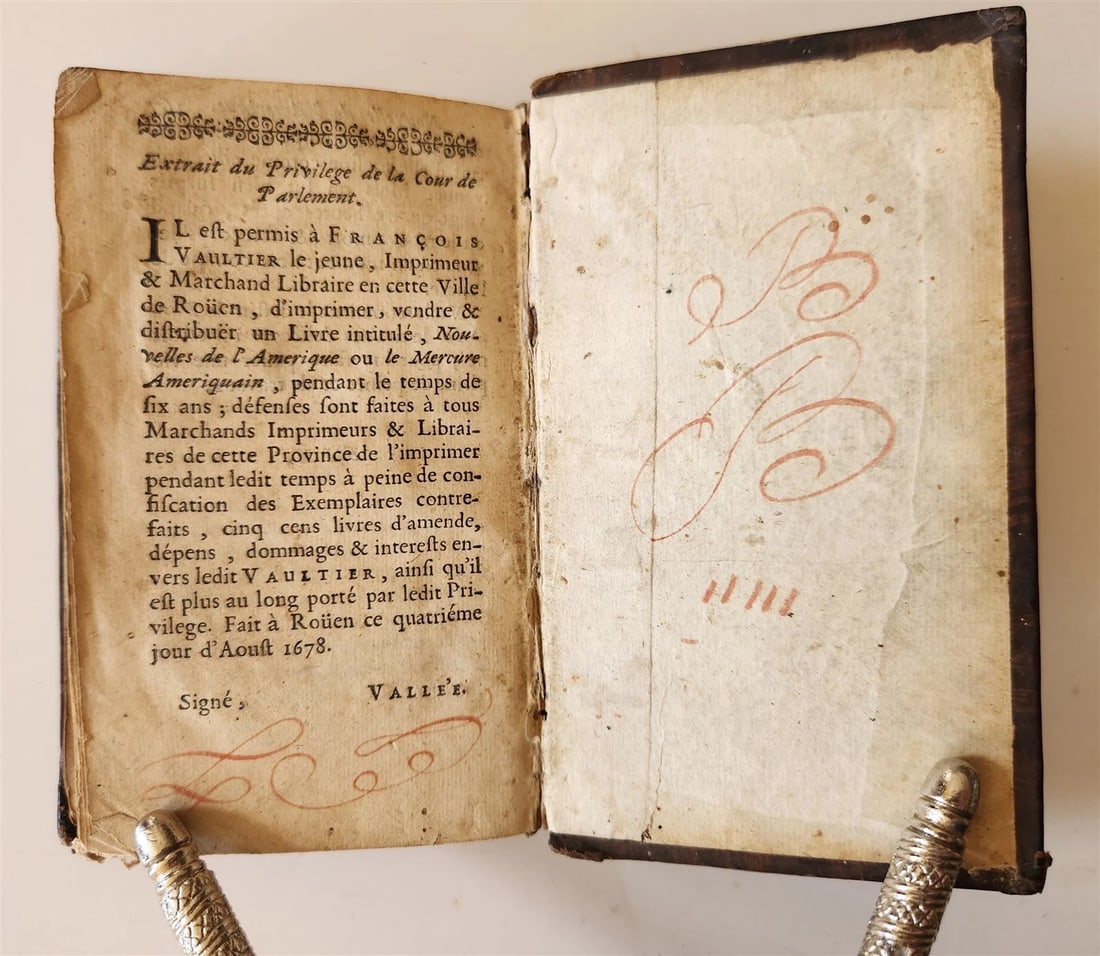 Extrait du Privilege de la Cour de
Parlement.
IL eſt permis à FRANÇOIS
VAULTIER le jeune, Imprimeur
& Marchand Libraire en cette Ville
de Roüen, d'imprimer, vendre &
diſtribuër un Livre intitulé, Nou-
velles de l'Amerique ou le Mercure
Ameriquain, pendant le temps de
ſix ans; défenſes ſont faites à tous
Marchands Imprimeurs & Librai-
res de cette Province de l'imprimer
pendant ledit temps à peine de con-
fiſcation des Exemplaires contre-
faits, cinq cens livres d'amende,
dépens, dommages & intereſts en-
vers ledit VAULTIER, ainſi qu'il
eſt plus au long porté par ledit Pri-
vilege. Fait à Roüen ce quatriéme
jour d'Aouſt 1678.
Signé, VALLE'E.